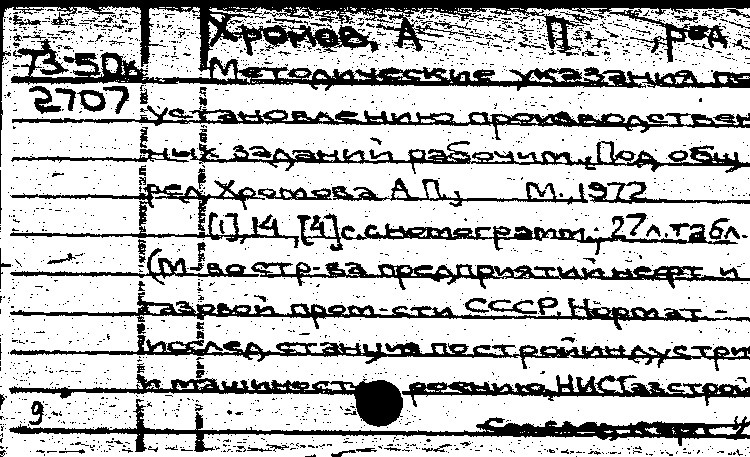 Хромов, А П , ред.
73-50к
Методические указания по
2707
установлению производствен
ных заданий рабочим. Под общ
ред Хромова А.П., М., 1972
[1], 14, [4] с. с номограмм.; 27л. табл.
(М-во стр-ва предприятий нефт и
газовой пром-сти СССР. Нормат -
исслед станция по строй индустрии
и машиностроению НИСГазстрой
9